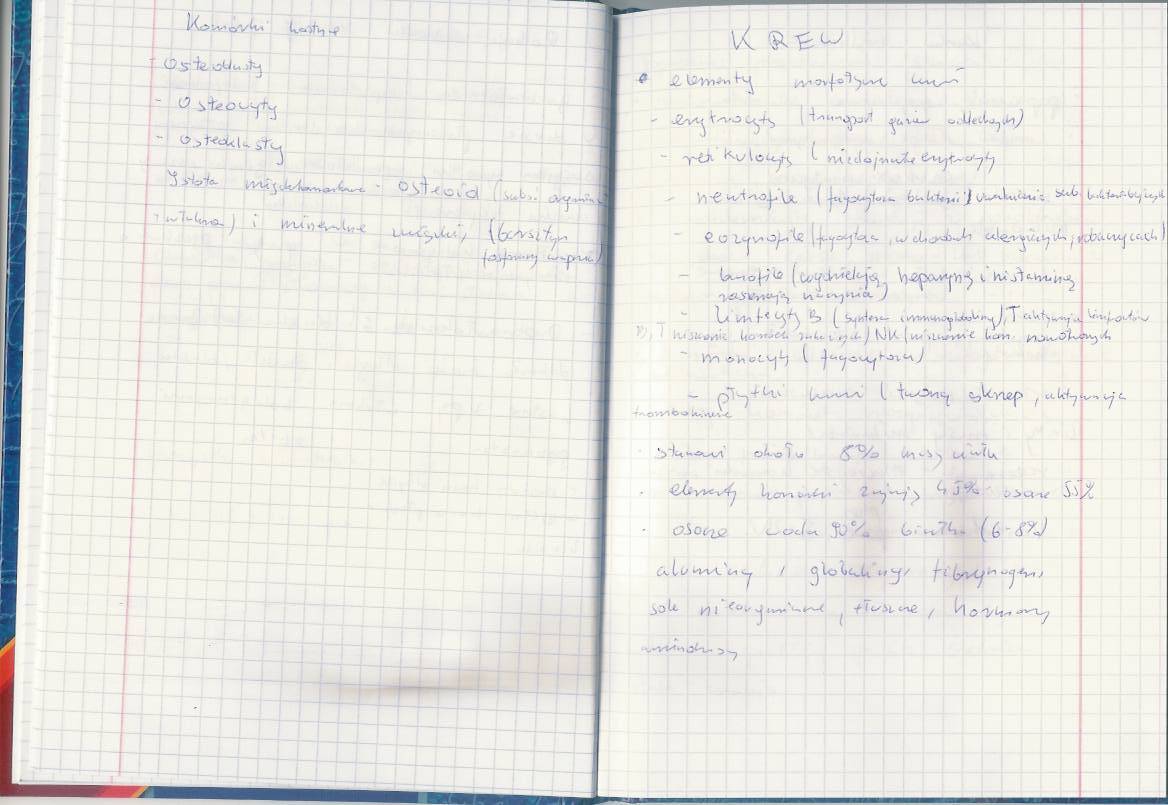 Komórki kostne
- Osteoklasty
- Osteocyty
- osteoklasty
Istota międzykomórkowa - osteoid (subs. organiczna
+ włókna) i mineralne związki, (kryształy
fosforany wapnia)
KREW
• elementy morfotyczne krwi
- erytrocyty (transport gazów oddechowych)
- retikulocyty (niedojrzałe erytrocyty
- neutrofile (fagocytoza bakterii) uwalnianie sub. bakteriobójczych
- eozynofile (fagocytoza, w chorobach alergicznych, robaczycach)
- bazofile (wydzielają heparynę i histaminę
rozszerzają naczynia)
- limfocyty B (synteza immunoglobuliny), T aktywacja limfocytów
B, T niszczenie komórek) NK (niszczenie kom. nowotworowych
- monocyty (fagocytoza)
- płytki krwi (tworzą skrzep, aktywacja
trombokinezę
· stanowi około 8% masy ciała
· elementy komórki zajmują 45% osocze 55%
· osocze woda 90% białka (6-8%)
albuminy, globuliny, fibrynogen,
sole nieorganiczne, tłuszcze, hormony
aminokwasy